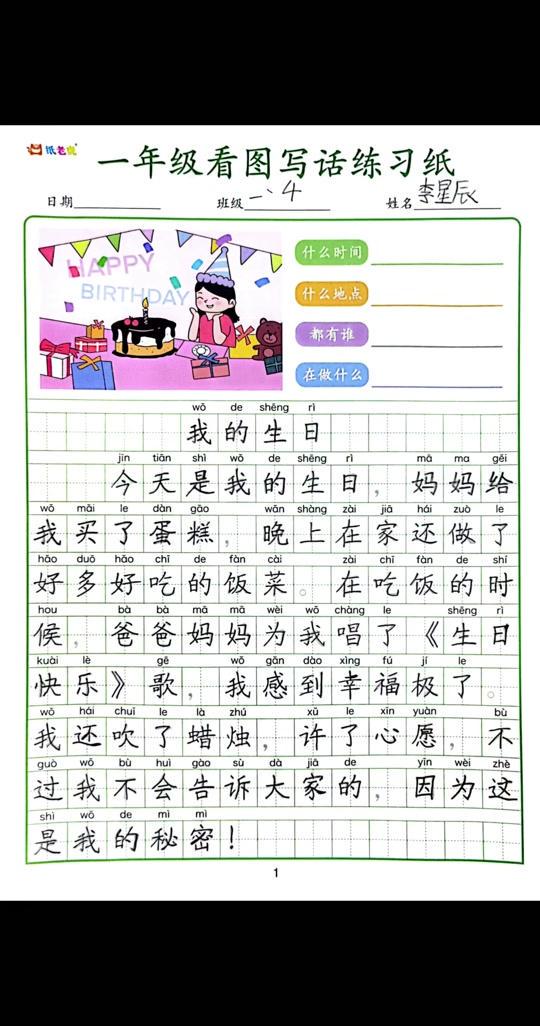 纸老虎
一年级看图写话练习纸
日期 班级 一、4 姓名 李星辰
HAPPY
BIRTHDAY
什么时间
什么地点
都有谁
在做什么
wǒ de shēng rì
我的生日
jīn tiān shì wǒ de shēng rì mā ma gěi
今天是我的生日，妈妈给
wǒ mǎi le dàn gāo wǎn shàng zài jiā hái zuò le
我买了蛋糕，晚上在家还做了
hǎo duō hǎo chī de fàn cài zài chī fàn de shí
好多好吃的饭菜。在吃饭的时
hou bà bà mā mā wèi wǒ chàng le shēng rì
候，爸爸妈妈为我唱了《生日
kuài lè gē wǒ gǎn dào xìng fú jí le
快乐》歌，我感到幸福极了。
wǒ hái chuī le là zhú xǔ le xīn yuàn bù
我还吹了蜡烛，许了心愿，不
guò wǒ bù huì gào sù dà jiā de yīn wèi zhè
过我不会告诉大家的，因为这
shì wǒ de mì mì
是我的秘密！
1